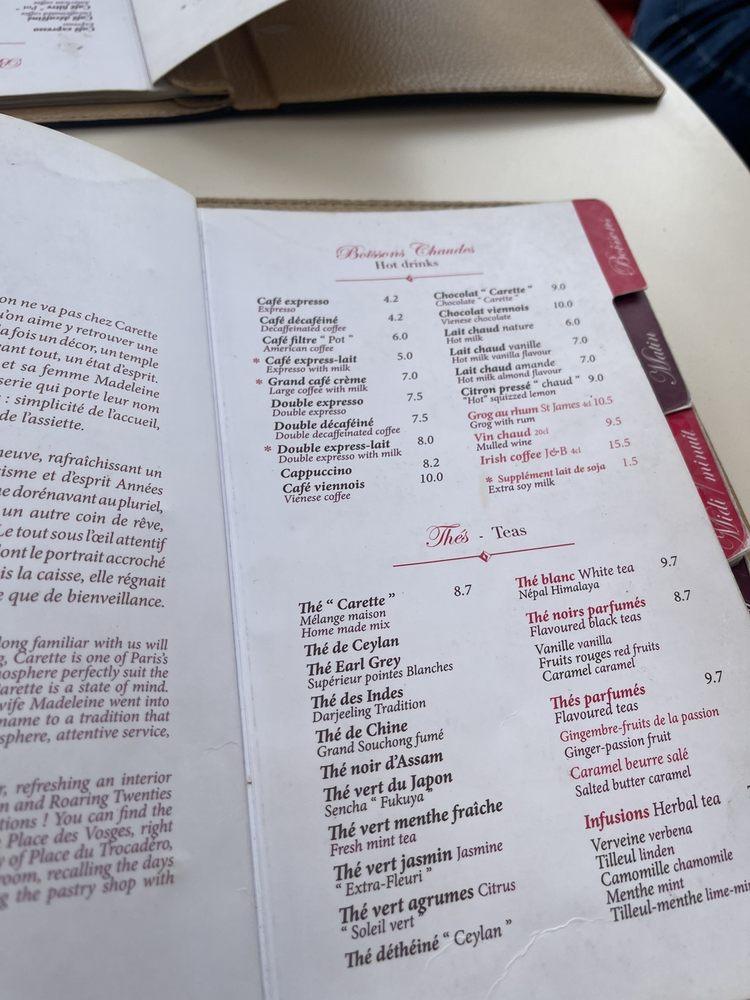 Café filtre " Pot "
Café décaféiné
Expresso
Café expresso
on ne va pas chez Carette
qu'on aime y retrouver une
la fois un décor, un temple
vant tout, un état d'esprit.
et sa femme Madeleine
serie qui porte leur nom
: simplicité de l'accueil,
de l'assiette.
neuve, rafraîchissant un
isme et d'esprit Années
ue dorénavant au pluriel,
un autre coin de rêve,
Le tout sous l'œil attentif
dont le portrait accroché
is la caisse, elle régnait
e que de bienveillance.
long familiar with us will
g, Carette is one of Paris's
nosphere perfectly suit the
Carette is a state of mind.
wife Madeleine went into
name to a tradition that
sphere, attentive service,
r, refreshing an interior
n and Roaring Twenties
tions ! You can find the
Place des Vosges, right
y of Place du Trocadéro,
room, recalling the days
ng the pastry shop with
Boissons Chaudes
Hot drinks
Café expresso 4.2
Expresso
Café décaféiné 4.2
Decaffeinated coffee
Café filtre " Pot " 6.0
American coffee
* Café express-lait 5.0
Expresso with milk
* Grand café crème 7.0
Large coffee with milk
Double expresso 7.5
Double expresso
Double décaféiné 7.5
Double decaffeinated coffee
* Double express-lait 8.0
Double expresso with milk
Cappuccino 8.2
Café viennois 10.0
Vienese coffee
Chocolat " Carette " 9.0
Chocolate " Carette "
Chocolat viennois 10.0
Vienese chocolate
Lait chaud nature 6.0
Hot milk
Lait chaud vanille 7.0
Hot milk vanilla flavour
Lait chaud amande 7.0
Hot milk almond flavour
Citron pressé " chaud " 9.0
"Hot" squizzed lemon
Grog au rhum St James 4cl 10.5
Grog with rum
Vin chaud 20cl 9.5
Mulled wine
Irish coffee J&B 4cl 15.5
* Supplément lait de soja 1.5
Extra soy milk
Thés - Teas
Thé " Carette " 8.7
Mélange maison
Home made mix
Thé de Ceylan
Thé Earl Grey
Supérieur pointes Blanches
Thé des Indes
Darjeeling Tradition
Thé de Chine
Grand Souchong fumé
Thé noir d'Assam
Thé vert du Japon
Sencha " Fukuya "
Thé vert menthe fraîche
Fresh mint tea
Thé vert jasmin Jasmine
" Extra-Fleuri "
Thé vert agrumes Citrus
" Soleil vert "
Thé déthéiné " Ceylan "
Thé blanc White tea 9.7
Népal Himalaya
Thé noirs parfumés 8.7
Flavoured black teas
Vanille vanilla
Fruits rouges red fruits
Caramel caramel
Thés parfumés 9.7
Flavoured teas
Gingembre-fruits de la passion
Ginger-passion fruit
Caramel beurre salé
Salted butter caramel
Infusions Herbal tea
Verveine verbena
Tilleul linden
Camomille chamomile
Menthe mint
Tilleul-menthe lime-min
Boissons
Matin
Midi / minuit